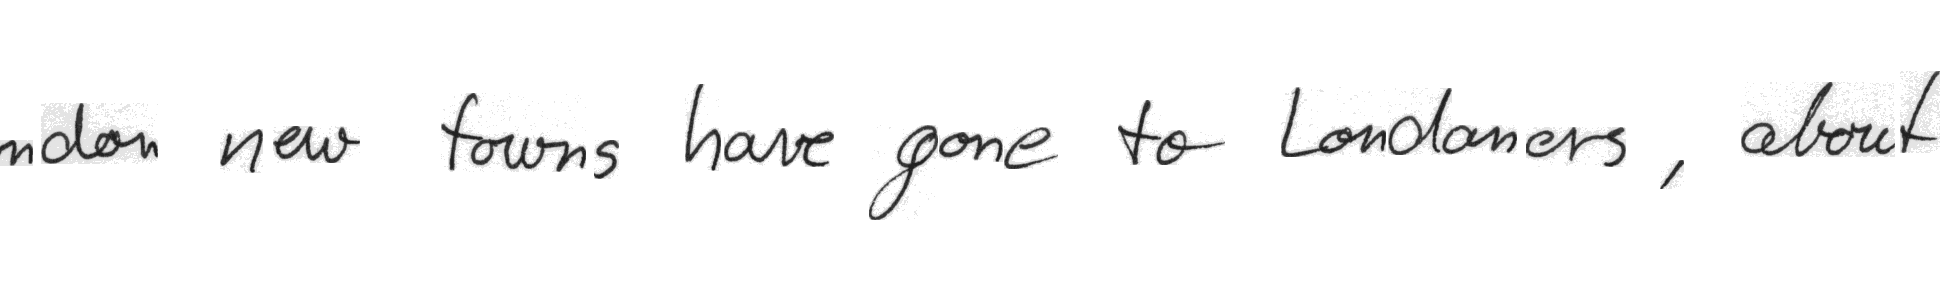 ndon new towns have gone to Londoners, about